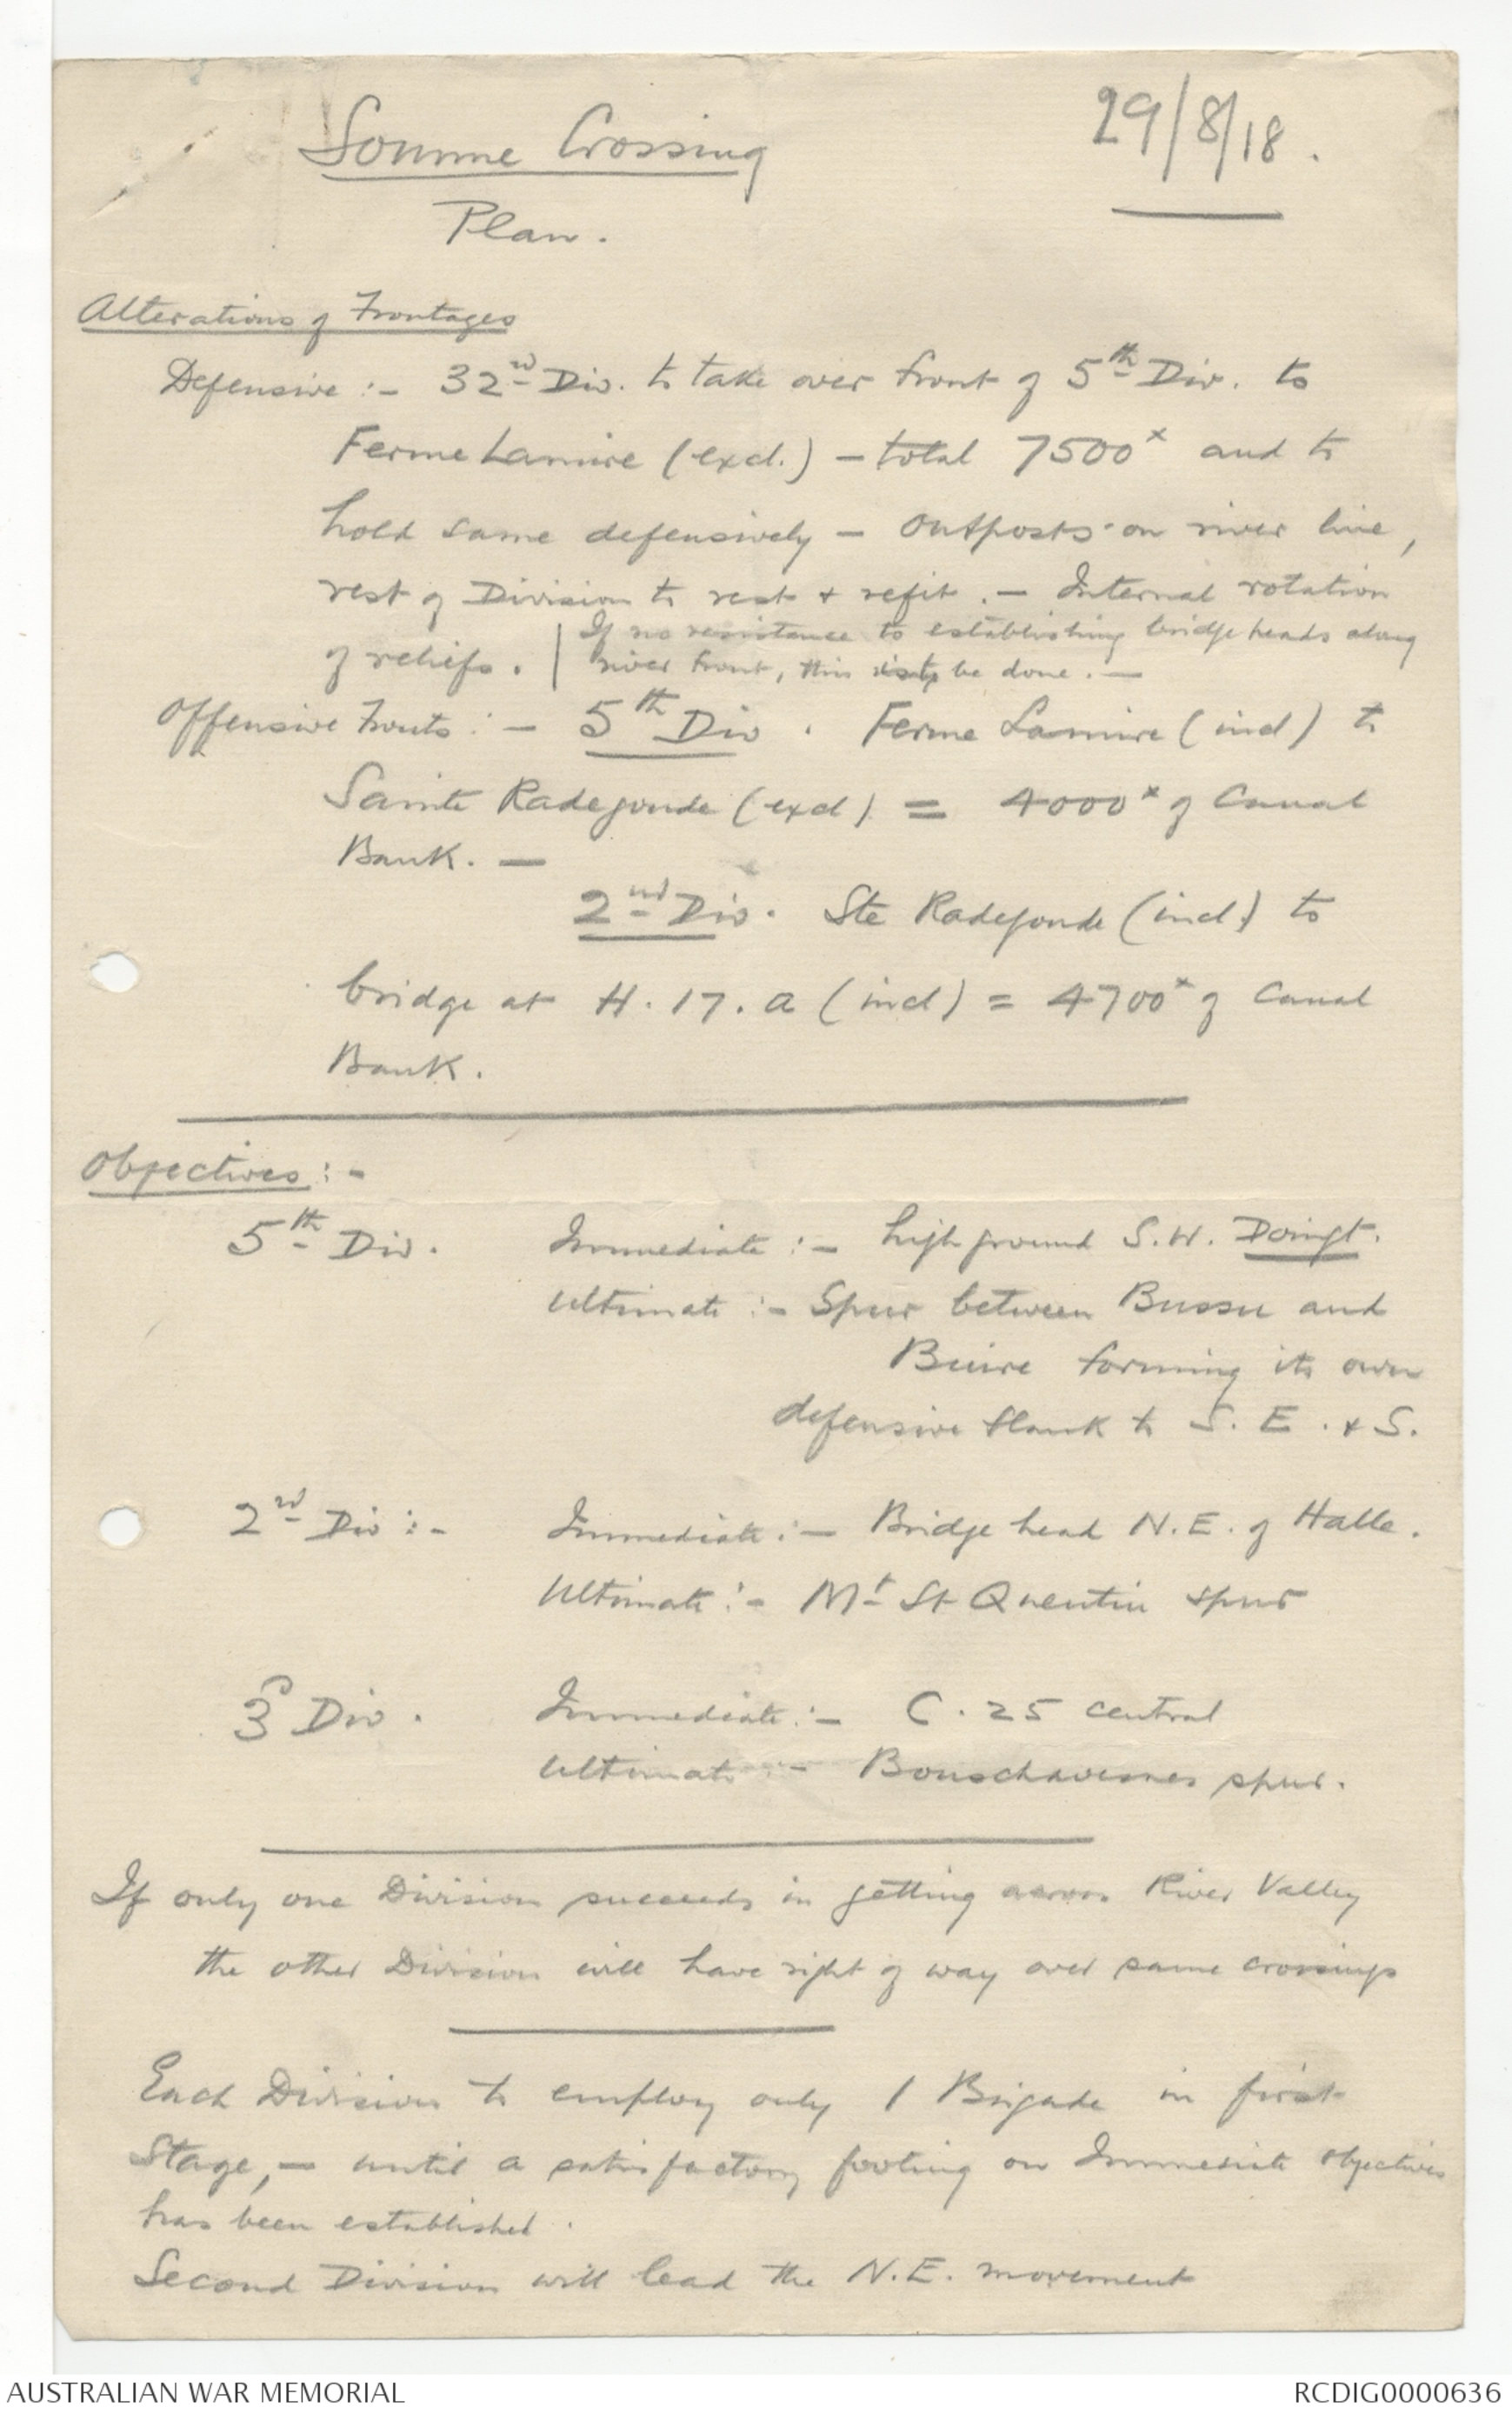 Somme Crossing
29/8/18.
Plan.
Alterations of Frontages
Defensive :- 32nd Div. to take over front of 5th Div. to
Ferme Lamire (excl.) - total 7500x and to
hold same defensively - outposts on river line,
rest of Division to rest & refit. - Internal rotation
of reliefs. | If no resistance to establishing bridge heads along
river front, this is to be done. -
Offensive Fronts :- 5th Div. Ferme Lamire (incl) to
Sainte Radegonde (excl) = 4000x of Canal
Bank. -
2nd Div. Ste Radegonde (incl.) to
bridge at H.17.a (incl) = 4700x of Canal
Bank.
Objectives :-
5th Div. Immediate :- high ground S.W. Doingt.
Ultimate :- Spur between Bussu and
Buire forming its own
defensive flank to S.E. & S.
2nd Div :- Immediate :- Bridge head N.E. of Halle.
Ultimate :- Mt St Quentin spur
3rd Div. Immediate :- C.25 central
Ultimate :- Bouschavesnes spur.
If only one Division succeeds in getting across River Valley
the other Division will have right of way over same crossings
Each Division to employ only 1 Brigade in first
Stage, - until a satisfactory footing on Immediate objectives
has been established.
Second Division will lead the N.E. movement
AUSTRALIAN WAR MEMORIAL
RCDIG0000636